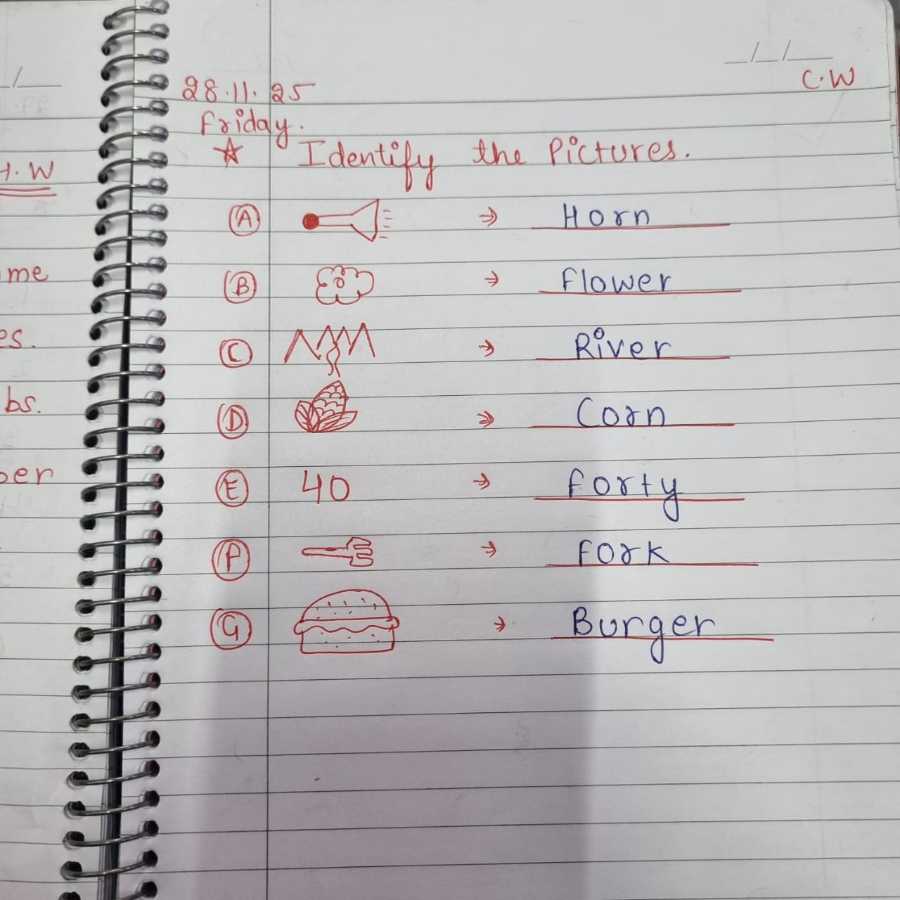 _/_/__
C.W
28.11.25
Friday.
☆ Identify the Pictures.
A → Horn
B → Flower
C → River
D → Corn
E 40 → Forty
P → Fork
G → Burger
H.W
me
es.
bs.
ber